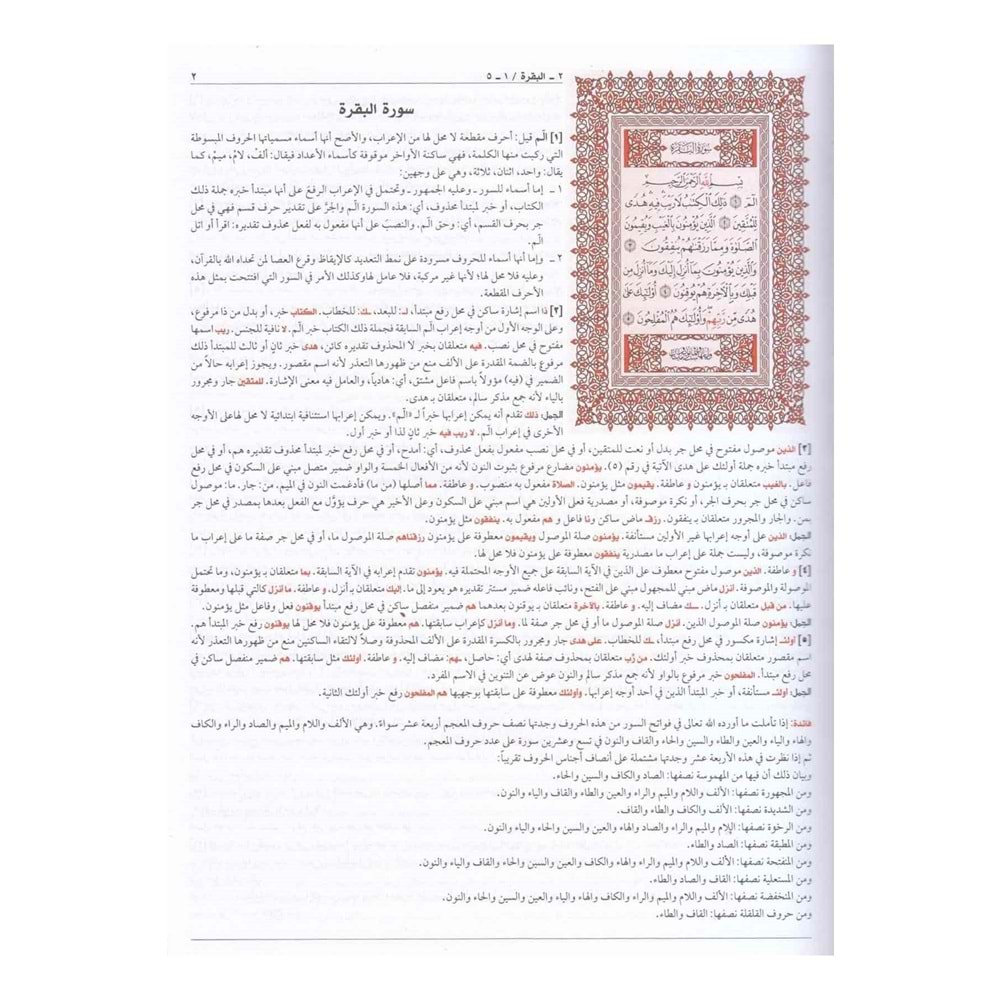 ٢ - البقرة / ١ - ٥
٢
سورة البقرة
[١] الٓم قيل: أحرف مقطعة لا محل لها من الإعراب، والأصح أنها أسماء مسمياتها الحروف المبسوطة
التي ركبت منها الكلمة، فهي ساكنة الأواخر موقوفة كأسماء الأعداد فيقال: ألفْ، لامْ، ميمْ، كما
يقال: واحد، اثنان، ثلاثة، وهي على وجهين:
١ ـ إما أسماء للسور ـ وعليه الجمهور ـ وتحتمل في الإعراب الرفعَ على أنها مبتدأ خبره جملة ذلك
الكتاب، أو خبر لمبتدأ محذوف، أي: هذه السورة الٓم والجرَّ على تقدير حرف قسم فهي في محل
جر بحرف القسم، أي: وحق الٓم. والنصبَ على أنها مفعول به لفعل محذوف تقديره: اقرأ أو اتل
الٓم.
٢ ـ وإما أنها أسماء للحروف مسرودة على نمط التعديد كالإيقاظ وقرع العصا لمن تحداه الله بالقرآن،
وعليه فلا محل لها؛ لأنها غير مركبة، فلا عامل لها وكذلك الأمر في السور التي افتتحت بمثل هذه
الأحرف المقطعة.
[٢] ذا اسم إشارة ساكن في محل رفع مبتدأ، لـ: للبعد، ـك: للخطاب. الكتاب خبر، أو بدل من ذا مرفوع،
وعلى الوجه الأول من أوجه إعراب الٓم السابقة فجملة ذلك الكتاب خبر الٓم. لا نافية للجنس. ريب اسمها
مفتوح في محل نصب. فيه متعلقان بخبر لا المحذوف تقديره كائن، هدى خبر ثان أو ثالث للمبتدأ ذلك
مرفوع بالضمة المقدرة على الألف منع من ظهورها التعذر لأنه اسم مقصور. ويجوز إعرابه حالاً من
الضمير في (فيه) مؤولاً باسم فاعل مشتق، أي: هادياً، والعامل فيه معنى الإشارة. للمتقين جار ومجرور
بالياء لأنه جمع مذكر سالم، متعلقان بـ هدى.
الجمل: ذلك تقدم أنه يمكن إعرابها خبراً لـ «الٓم». ويمكن إعرابها استئنافية ابتدائية لا محل لها على الأوجه
الأخرى في إعراب الٓم. لا ريب فيه خبر ثانٍ لذا أو خبر أول.
سورة البقرة
بسم الله الرحمن الرحيم
الٓمٓ ١ ذَٰلِكَ ٱلْكِتَٰبُ لَا رَيْبَ فِيهِ هُدًى
لِّلْمُتَّقِينَ ٢ ٱلَّذِينَ يُؤْمِنُونَ بِٱلْغَيْبِ وَيُقِيمُونَ
ٱلصَّلَوٰةَ وَمِمَّا رَزَقْنَٰهُمْ يُنفِقُونَ ٣
وَٱلَّذِينَ يُؤْمِنُونَ بِمَآ أُنزِلَ إِلَيْكَ وَمَآ أُنزِلَ مِن
قَبْلِكَ وَبِٱلْءَاخِرَةِ هُمْ يُوقِنُونَ ٤ أُو۟لَٰٓئِكَ عَلَىٰ
هُدًى مِّن رَّبِّهِمْ وَأُو۟لَٰٓئِكَ هُمُ ٱلْمُفْلِحُونَ ٥
[٣] الذين موصول مفتوح في محل جر بدل أو نعت للمتقين، أو في محل نصب مفعول بفعل محذوف، أي: أمدح، أو في محل رفع خبر لمبتدأ محذوف تقديره هم، أو في محل
رفع مبتدأ خبره جملة أولئك على هدى الآتية في رقم (٥). يؤمنون مضارع مرفوع بثبوت النون لأنه من الأفعال الخمسة والواو ضمير متصل مبني على السكون في محل رفع
فاعل. بالغيب متعلقان بـ يؤمنون و عاطفة. يقيمون مثل يؤمنون. الصلاة مفعول به منصوب. و عاطفة. مما أصلها (من ما) فأدغمت النون في الميم. من: جار. ما: موصول
ساكن في محل جر بحرف الجر، أو نكرة موصوفة، أو مصدرية فعلى الأولين هي اسم مبني على السكون وعلى الأخير هي حرف يؤوَّل مع الفعل بعدها بمصدر في محل جر
بمن. والجار والمجرور متعلقان بـ ينفقون. رزقـ ماض ساكن ونا فاعل و هم مفعول به. ينفقون مثل يؤمنون.
الجمل: الذين على أوجه إعرابها غير الأولين مستأنفة. يؤمنون صلة الموصول ويقيمون معطوفة على يؤمنون رزقناهم صلة الموصول ما، أو في محل جر صفة ما على إعراب ما
نكرة موصوفة، وليست جملة على إعراب ما مصدرية ينفقون معطوفة على يؤمنون فلا محل لها.
[٤] و عاطفة. الذين موصول مفتوح معطوف على الذين في الآية السابقة على جميع الأوجه المحتملة فيه. يؤمنون تقدم إعرابه في الآية السابقة. بما متعلقان بـ يؤمنون، وما تحتمل
الموصولة والموصوفة. أنزل ماض مبني للمجهول مبني على الفتح، ونائب فاعله ضمير مستتر تقديره هو يعود إلى ما. إليك متعلقان بـ أنزل. و عاطفة. ما كالتي قبلها ومعطوفة
عليها. من قبل متعلقان بـ أنزل. ـك مضاف إليه. و عاطفة. بالآخرة متعلقان بـ يوقنون بعدهما هم ضمير منفصل ساكن في محل رفع مبتدأ يوقنون فعل وفاعل مثل يؤمنون.
الجمل: يؤمنون صلة الموصول الذين. أنزل صلة الموصول ما أو في محل جر صفة لما. وما أنزل كإعراب سابقتها. هم معطوفة على يؤمنون فلا محل لها يوقنون رفع خبر المبتدأ هم.
[٥] أولئـ إشارة مكسور في محل رفع مبتدأ، ـك للخطاب. على هدى جار ومجرور بالكسرة المقدرة على الألف المحذوفة وصلاً لالتقاء الساكنين منع من ظهورها التعذر لأنه
اسم مقصور متعلقان بمحذوف خبر أولئك. من رَّب متعلقان بمحذوف صفة لهدى أي: حاصل، ـهم: مضاف إليه. و عاطفة. أولئك مثل سابقتها. هم ضمير منفصل ساكن في
محل رفع مبتدأ. المفلحون خبر مرفوع بالواو لأنه جمع مذكر سالم والنون عوض عن التنوين في الاسم المفرد.
الجمل: أولئـ مستأنفة، أو خبر المبتدأ الذين في أحد أوجه إعرابها. وأولئك معطوفة على سابقتها بوجهيها هم المفلحون رفع خبر أولئك الثانية.
فائدة: إذا تأملت ما أورده الله تعالى في فواتح السور من هذه الحروف وجدتها نصف حروف المعجم أربعة عشر سواءً. وهي الألف واللام والميم والصاد والراء والكاف
والهاء والياء والعين والطاء والسين والحاء والقاف والنون في تسع وعشرين سورة على عدد حروف المعجم.
ثم إذا نظرت في هذه الأربعة عشر وجدتها مشتملة على أنصاف أجناس الحروف تقريباً:
وبيان ذلك أن فيها من المهموسة نصفها: الصاد والكاف والسين والحاء.
ومن المجهورة نصفها: الألف واللام والميم والراء والعين والطاء والقاف والياء والنون.
ومن الشديدة نصفها: الألف والكاف والطاء والقاف.
ومن الرخوة نصفها: اللام والميم والراء والصاد والهاء والعين والسين والحاء والياء والنون.
ومن المطبقة نصفها: الصاد والطاء.
ومن المنفتحة نصفها: الألف واللام والميم والراء والهاء والكاف والعين والسين والحاء والقاف والياء والنون.
ومن المستعلية نصفها: القاف والصاد والطاء.
ومن المنخفضة نصفها: الألف واللام والميم والراء والكاف والهاء والياء والعين والسين والحاء والنون.
ومن حروف القلقلة نصفها: القاف والطاء.